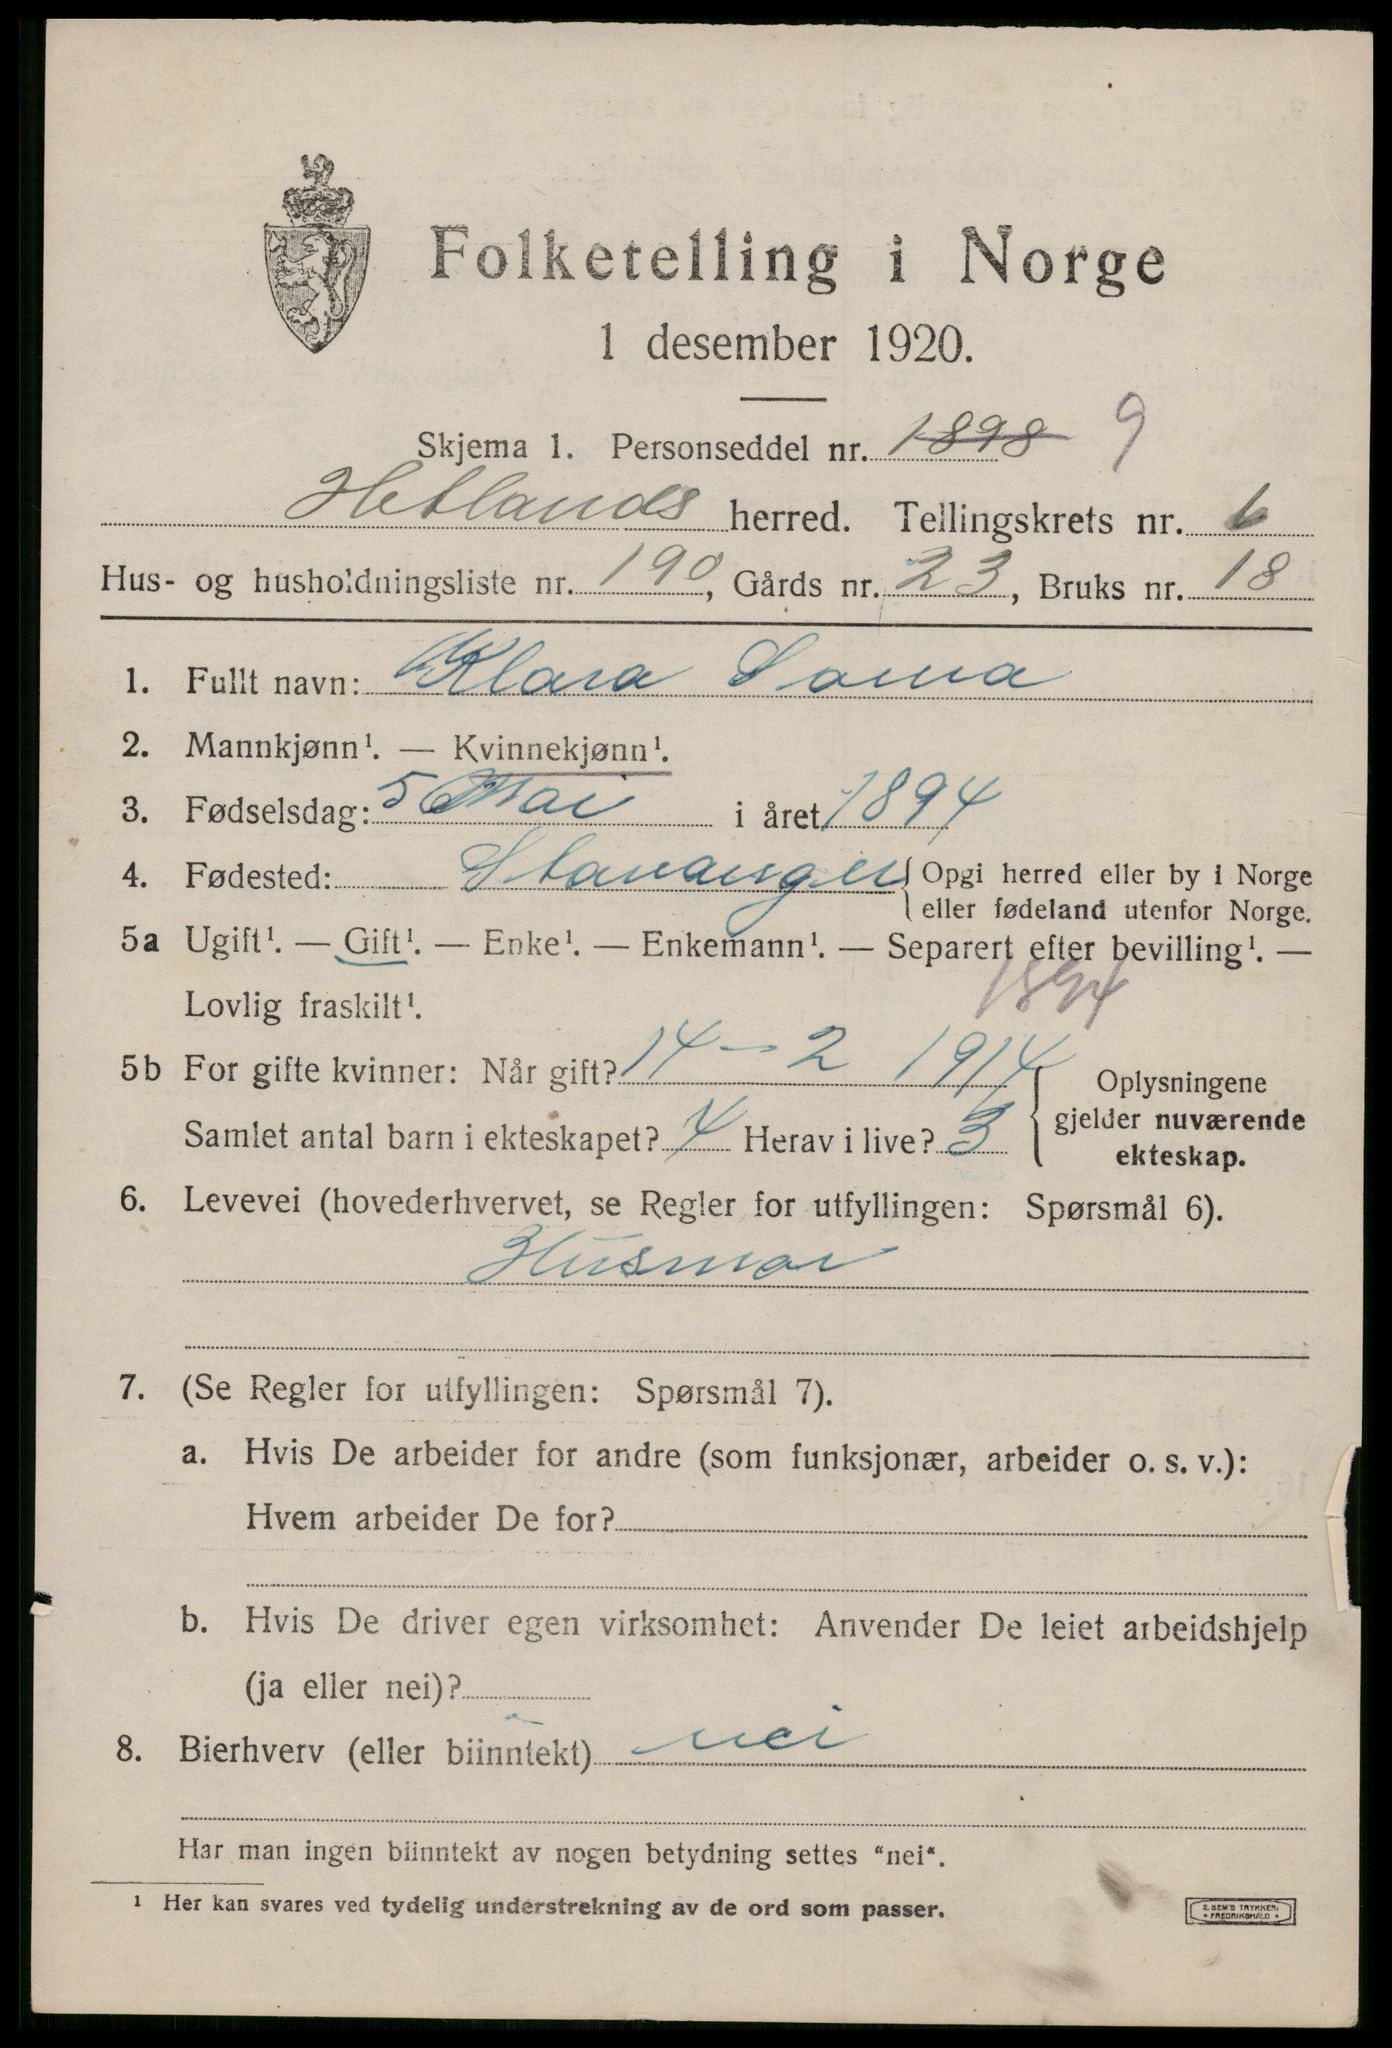 Folketelling i Norge
1 desember 1920.
Skjema 1. Personseddel nr. 1898 9
Hetlands herred. Tellingskrets nr. 6
Hus- og husholdningsliste nr. 190, Gårds nr. 23, Bruks nr. 18
1. Fullt navn: Klara Soma
2. Mannkjønn¹. — Kvinnekjønn¹.
3. Fødselsdag: 5 Mai i året 1894
4. Fødested: Stavanger { Opgi herred eller by i Norge
eller fødeland utenfor Norge.
5a Ugift¹. — Gift¹. — Enke¹. — Enkemann¹. — Separert efter bevilling¹. —
Lovlig fraskilt¹. 1894
5b For gifte kvinner: Når gift? 14 - 2 1914
Samlet antal barn i ekteskapet? 4 Herav i live? 3
Oplysningene
gjelder nuværende
ekteskap.
6. Levevei (hovederhvervet, se Regler for utfyllingen: Spørsmål 6).
Husmor
7. (Se Regler for utfyllingen: Spørsmål 7).
a. Hvis De arbeider for andre (som funksjonær, arbeider o. s. v.):
Hvem arbeider De for?
b. Hvis De driver egen virksomhet: Anvender De leiet arbeidshjelp
(ja eller nei)?
8. Bierhverv (eller biinntekt) nei
Har man ingen biinntekt av nogen betydning settes "nei".
¹ Her kan svares ved tydelig understrekning av de ord som passer.
E. SEM'S TRYKKERI
* FREDRIKSHALD *